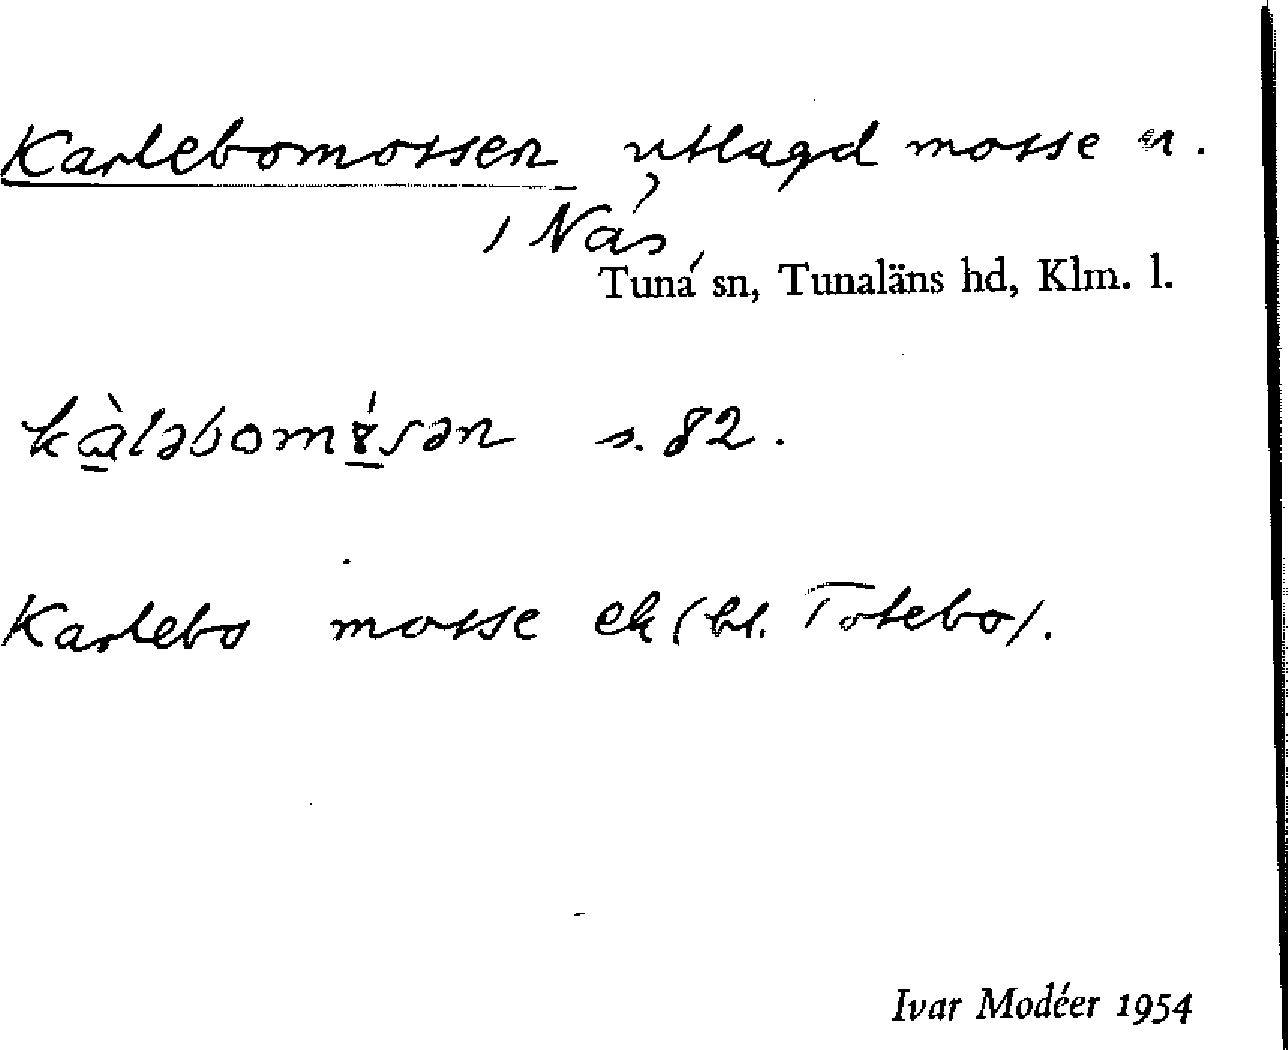 Karlebomossen utlagd mosse n.
i Näs,
Tuna sn, Tunaläns hd, Klm. l.
kàləbomı̣sən s. 82.
Karlebo mosse ek (bl. Totebo).
Ivar Modéer 1954